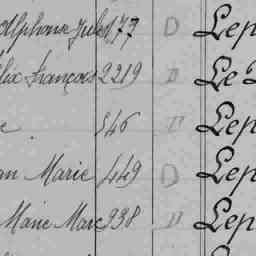 Alphonse Jules 177 D Lep
lix François 2219 D Le
e 546 D Lep
an Marie 449 D Lep
Marie Marc 938 D Lep